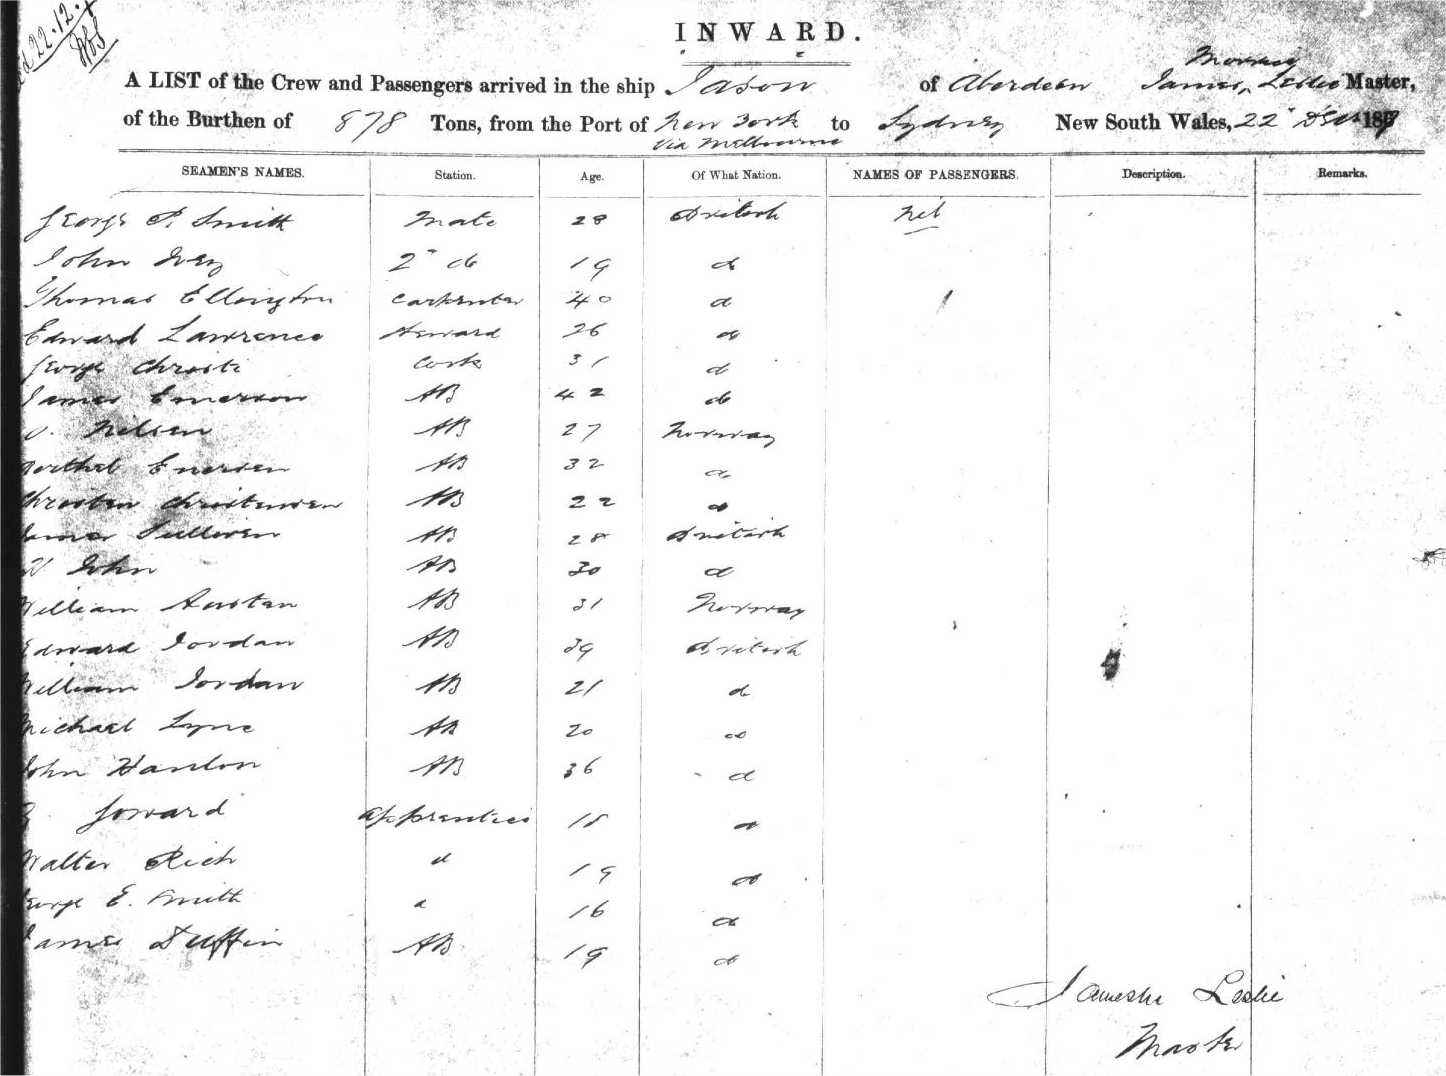 22.12.
INWARD.
A LIST of the Crew and Passengers arrived in the ship Jason of Aberdeen James Murray Leslie Master,
of the Burthen of 878 Tons, from the Port of New York via Melbourne to Sydney New South Wales, 22 Decr 187
SEAMEN'S NAMES. Station. Age. Of What Nation. NAMES OF PASSENGERS. Description. Remarks.
George P. Smith Mate 28 British Nil
John Ivey 2nd do 19 do
Thomas Ellington Carpenter 40 do
Edward Lawrence Steward 26 do
George Christie Cook 31 do
James Emerson AB 42 do
Nilsen AB 27 Norway
Enersen AB 32 do
Christen Christensen AB 22 do
James Sullivan AB 28 British
John AB 30 do
William Austen AB 31 Norway
Edward Jordan AB 39 British
William Jordan AB 21 do
Michael Lyne AB 20 do
John Hanlon AB 36 do
apprentice 18 do
Walter Rich d 19 do
George E. Smith d 16 do
James Duffin AB 19 do
James Leslie
Master